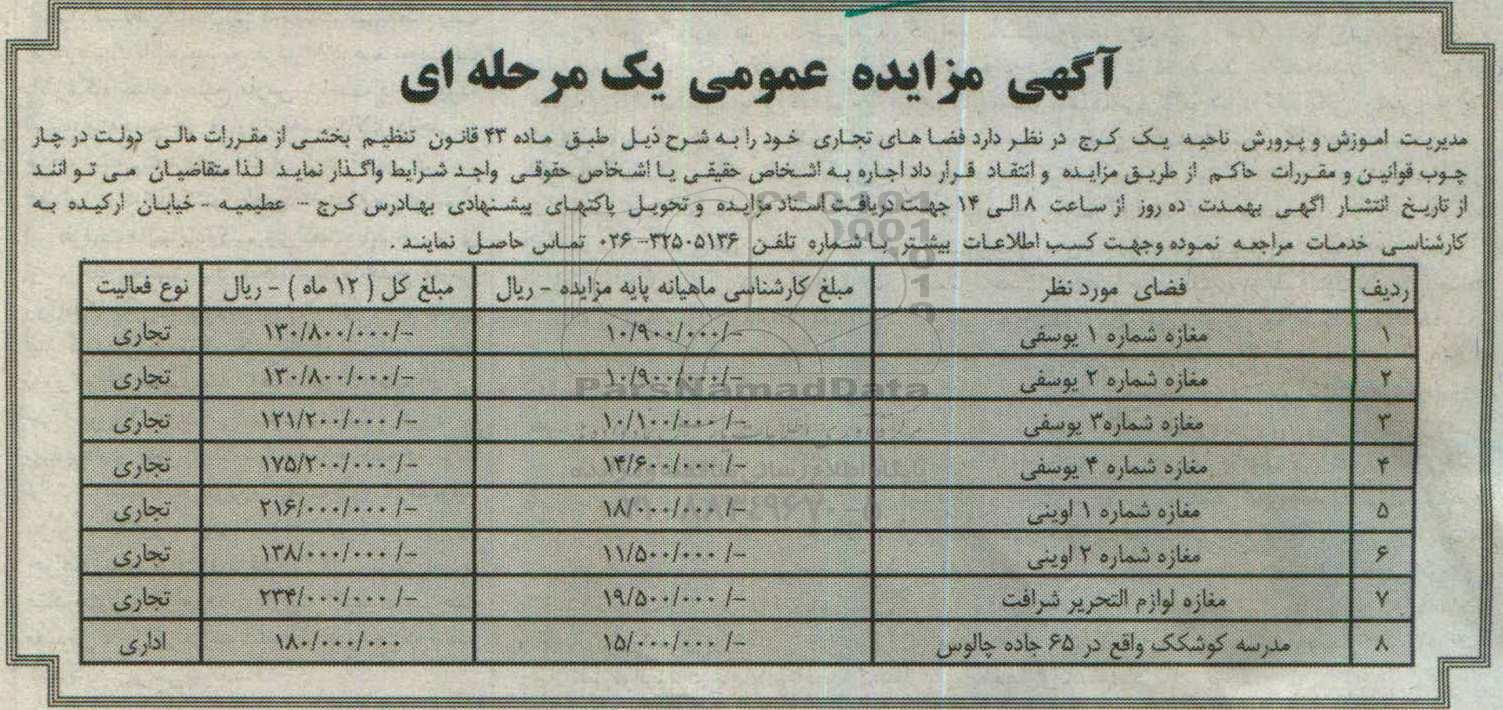 آگهی مزایده عمومی یک مرحله ای
مدیریت اموزش و پرورش ناحیه یک کرج در نظر دارد فضا های تجاری خود را به شرح ذیل طبق ماده ۴۳ قانون تنظیم بخشی از مقررات مالی دولت در چار
چوب قوانین و مقررات حاکم از طریق مزایده و انتقاد قرار داد اجاره به اشخاص حقیقی یا اشخاص حقوقی واجد شرایط واگذار نماید لذا متقاضیان می تو انند
از تاریخ انتشار اگهی بهمدت ده روز از ساعت ۸ الی ۱۴ جهت دریافت اسناد مزایده و تحویل پاکتهای پیشنهادی بهادرس کرج - عظیمیه - خیابان ارکیده به
کارشناسی خدمات مراجعه نموده وجهت کسب اطلاعات بیشتر با شماره تلفن ۳۲۵۰۵۱۳۶-۰۲۶ تماس حاصل نمایند .
ردیف فضای مورد نظر مبلغ کارشناسی ماهیانه پایه مزایده - ریال مبلغ کل ( ۱۲ ماه ) - ریال نوع فعالیت
۱ مغازه شماره ۱ یوسفی ۱۰/۹۰۰/۰۰۰/- ۱۳۰/۸۰۰/۰۰۰/- تجاری
۲ مغازه شماره ۲ یوسفی ۱۰/۹۰۰/۰۰۰/- ۱۳۰/۸۰۰/۰۰۰/- تجاری
۳ مغازه شماره۳ یوسفی ۱۰/۱۰۰/۰۰۰ /- ۱۲۱/۲۰۰/۰۰۰ /- تجاری
۴ مغازه شماره ۴ یوسفی ۱۴/۶۰۰/۰۰۰ /- ۱۷۵/۲۰۰/۰۰۰ /- تجاری
۵ مغازه شماره ۱ اوینی ۱۸/۰۰۰/۰۰۰ /- ۲۱۶/۰۰۰/۰۰۰ /- تجاری
۶ مغازه شماره ۲ اوینی ۱۱/۵۰۰/۰۰۰ /- ۱۳۸/۰۰۰/۰۰۰ /- تجاری
۷ مغازه لوازم التحریر شرافت ۱۹/۵۰۰/۰۰۰ /- ۲۳۴/۰۰۰/۰۰۰ /- تجاری
۸ مدرسه کوشکک واقع در ۶۵ جاده چالوس ۱۵/۰۰۰/۰۰۰ /- ۱۸۰/۰۰۰/۰۰۰ اداری
ParsNamadData